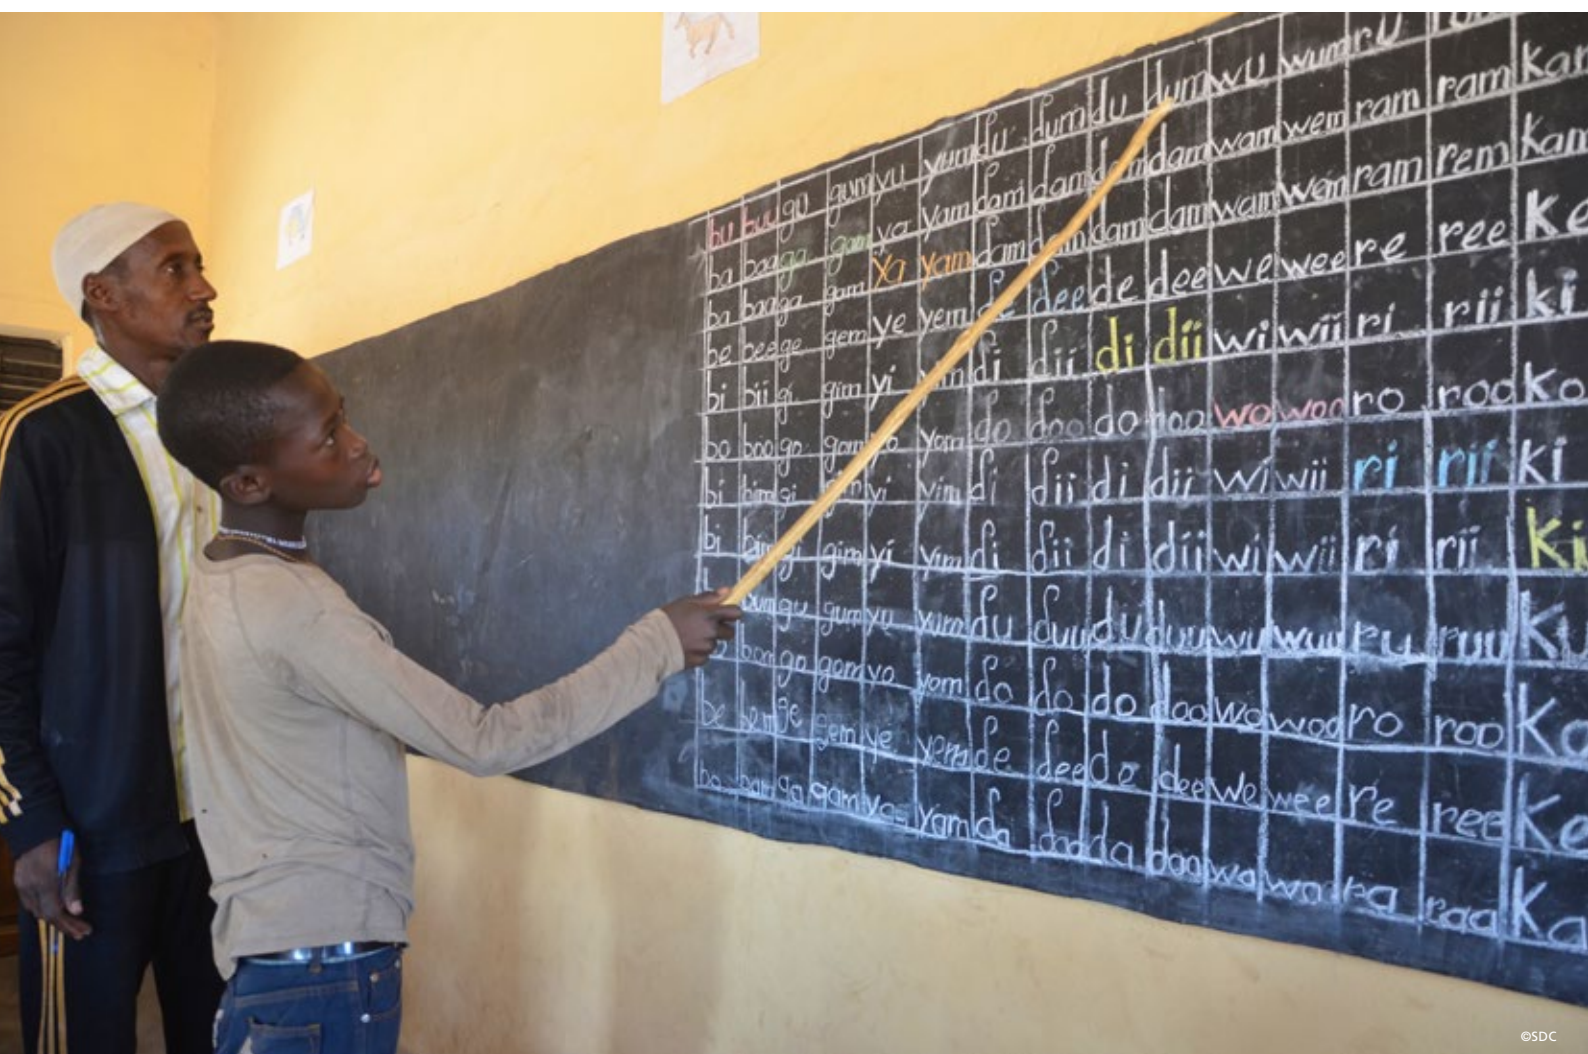 bu buu gu gum yu yum du dum du dum wu wum ru
ba baa ga gam ya yam dam dam dam wam wem ram ram kam
ba baa ga gam ya yam dam dam dam wam wem ram rem kam
be bee ge gem ye yem de dee de dee we wee re ree Ke
bi bii gi gim yi di dii di dii wi wii ri rii ki
bo boo go gom yom do doo do wo woo ro roo Ko
bi bim gi yi yim di dii di dii wi wii ri rii ki
bi bim gim yi yim di dii di dii wi wii ri rii Ki
bum gu gum yu yum du duu du duu wu wuu ru ruu Ku
bom go gom yo yom do do do doo wo woo ro roo Ko
be bem ge gem ye yem de dee de dee we wee re ree Ke
ba bam ga gam ya yam da daa da daa wa waa ra raa Ka
©SDC